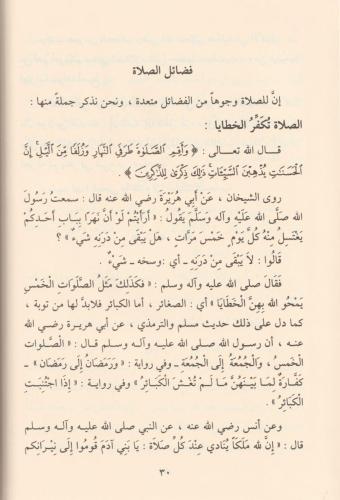 فضائل الصلاة
إنَّ للصلاة وجوهاً من الفضائل متعددة ، ونحن نذكر جملةً منها :
الصلاة تُكَفِّرُ الخطايا :
قال الله تعالى : ﴿ وَأَقِمِ ٱلصَّلَوٰةَ طَرَفَيِ ٱلنَّهَارِ وَزُلَفًا مِّنَ ٱلَّيْلِ إِنَّ
ٱلْحَسَنَٰتِ يُذْهِبْنَ ٱلسَّيِّـَٔاتِ ذَٰلِكَ ذِكْرَىٰ لِلذَّٰكِرِينَ ﴾ .
روى الشيخان ، عَنْ أَبي هُرَيْرَةَ رضي الله عنه قال : سمعتُ رَسولَ
الله صَلَّى الله عَلَيْهِ وَآله وَسَلَّمَ يَقُولُ : « أَرَأَيْتُمْ لَوْ أَنَّ نَهَرَاً بِبَابِ أَحَدِكُمْ
يَغْتَسِلُ مِنْهُ كُلَّ يَوْمٍ خَمْسَ مَرَّاتٍ ، هَلْ يَبْقَى مِنْ دَرَنِهِ شَيْءٌ » ؟
قَالُوا : لاَ يَبْقَى مِنْ دَرَنِهِ ـ أي :وسخه ـ شَيْءٌ .
فَقَالَ صلى الله عليه وآله وسلم : « فكَذلِكَ مَثَلُ الصَّلَوَاتِ الْخَمْسِ
يَمْحُو الله بِهِنَّ الْخَطَايَا » أي : الصغائر ، أما الكبائر فلابدَّ لها من توبة ،
كما دل على ذلك حديث مسلم والترمذي ، عن أبي هريرة رضي الله
عنه ، أن رسول الله صلى الله عليه وآله وسلم قال : « الصَّلوات
الخَمسُ ، وَالْجُمُعَةُ إِلَى الْجُمُعَةِ ـ وفي رواية : « وَرَمَضَانُ إِلَى رَمَضَانَ » ـ
كَفَّارَةٌ لِمَا بَيْنَهُنَّ مَا لَمْ تُغْشَ الْكَبَائِرُ » وفي رواية : « إِذَا اجْتُنِبَتِ
الْكَبَائِرُ » .
وعن أنس رضي الله عنه ، عن النبي صلى الله عليه وآله وسلم
قال : « إِنَّ لله مَلَكاً يُنَادي عِنْدَ كُلِّ صَلاَةٍ : يَا بَني آدَمَ قُومُوا إِلَى نِيرَانِكُم
٣٠